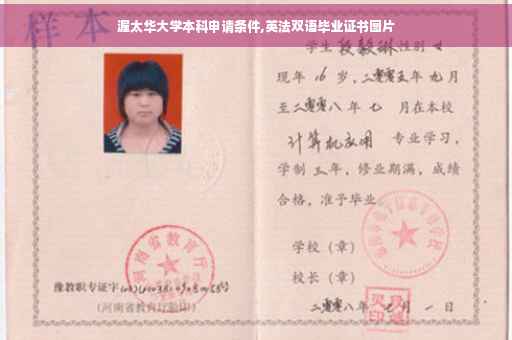 渥太华大学本科申请条件,英法双语毕业证书图片
样本
学生 段毅琳 性别 女
现年 16 岁,二零零五年 九月
至二零零八年 七 月在本校
计算机应用 专业学习,
学制 三年,修业期满,成绩
合格,准予毕业
学校(章)
校长(章)
二零零八年 七 月 一 日
河南省教育厅
豫教职专证字
(河南省教育厅验印)